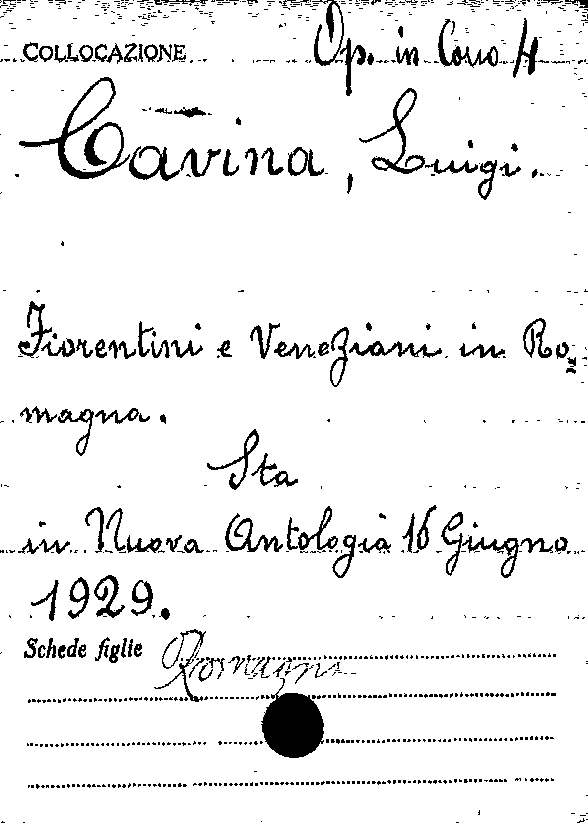 COLLOCAZIONE Op. in Corso H
Cavina, Luigi.
Fiorentini e Veneziani in Ro-
magna.
Sta
in Nuova Antologia 16 Giugno
1929.
Schede figlie Romagna